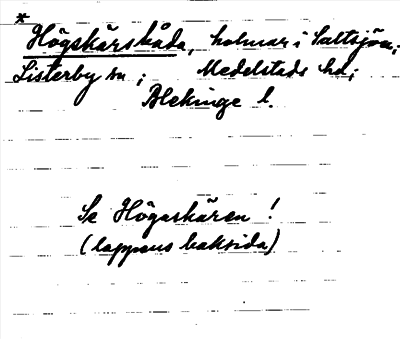 *
Högskärskåda, holmar i Saltsjön;
Listerby sn; Medelstads hd;
Blekinge l.
Se Högaskären!
(lappens baksida)